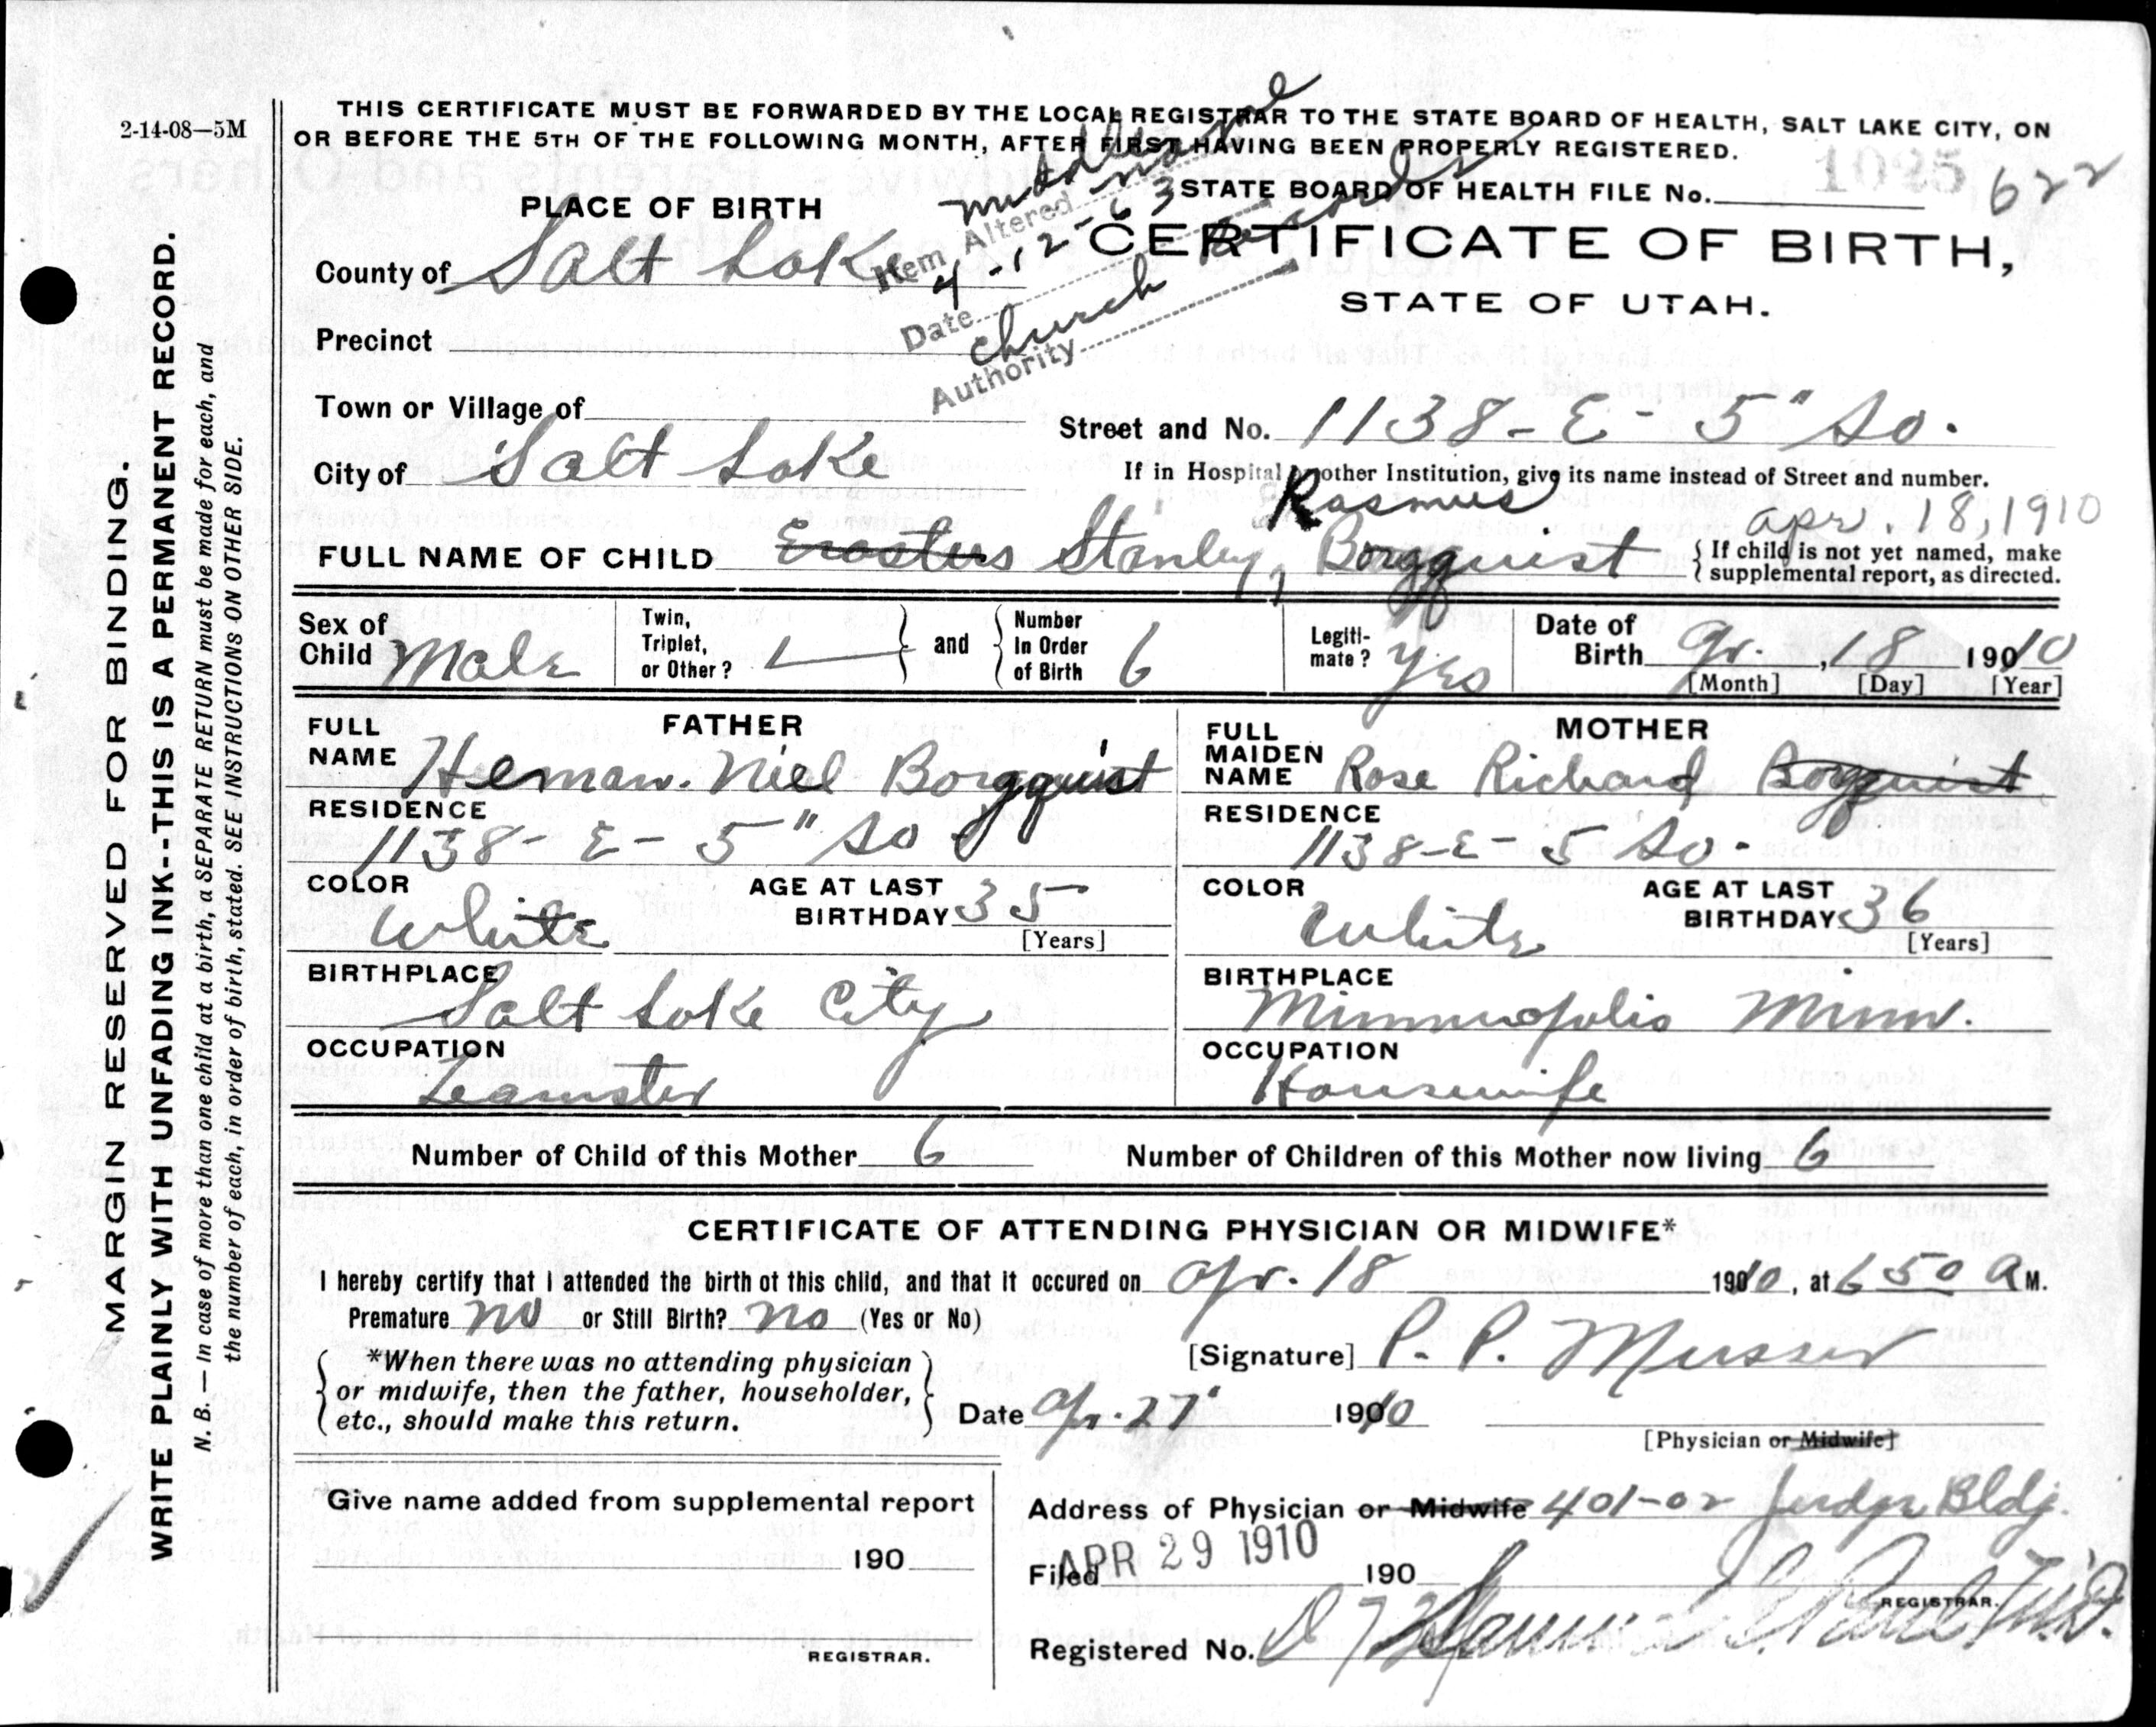 2-14-08—5M
THIS CERTIFICATE MUST BE FORWARDED BY THE LOCAL REGISTRAR TO THE STATE BOARD OF HEALTH, SALT LAKE CITY, ON
OR BEFORE THE 5TH OF THE FOLLOWING MONTH, AFTER FIRST HAVING BEEN PROPERLY REGISTERED.
MARGIN RESERVED FOR BINDING.
WRITE PLAINLY WITH UNFADING INK--THIS IS A PERMANENT RECORD.
N. B. — In case of more than one child at a birth, a SEPARATE RETURN must be made for each, and
the number of each, in order of birth, stated. SEE INSTRUCTIONS ON OTHER SIDE.
Item Altered middle name
Date 4-12-63
Authority Church Records
STATE BOARD OF HEALTH FILE No. 1095 622
PLACE OF BIRTH
CERTIFICATE OF BIRTH,
STATE OF UTAH.
County of Salt Lake
Precinct
Town or Village of
Street and No. 1138-E-5" So.
City of Salt Lake
If in Hospital or other Institution, give its name instead of Street and number.
Rasmus
apr. 18, 1910
FULL NAME OF CHILD Erastus Stanley, Borgquist
{ If child is not yet named, make
supplemental report, as directed.
Sex of Child Male
Twin, Triplet, or Other?
and
Number In Order of Birth 6
Legiti-mate? Yes
Date of Birth Ap. , 18 190 10
[Month] [Day] [Year]
FATHER
FULL NAME Heman. Niel Borgquist
RESIDENCE
1138-E-5" So
COLOR White
AGE AT LAST BIRTHDAY 35
[Years]
BIRTHPLACE
Salt Lake City
OCCUPATION
Teamster
MOTHER
FULL MAIDEN NAME Rose Richard Borgquist
RESIDENCE
1138-E-5 So.
COLOR White
AGE AT LAST BIRTHDAY 36
[Years]
BIRTHPLACE
Minneapolis Minn.
OCCUPATION
Housewife
Number of Child of this Mother 6
Number of Children of this Mother now living 6
CERTIFICATE OF ATTENDING PHYSICIAN OR MIDWIFE*
I hereby certify that I attended the birth of this child, and that it occured on Apr. 18 1910, at 6 50 A M.
Premature no or Still Birth? no (Yes or No)
*When there was no attending physician
or midwife, then the father, householder,
etc., should make this return.
[Signature] P. P. Musser
Date Apr. 27" 1910
[Physician or Midwife]
Give name added from supplemental report
190
REGISTRAR.
Address of Physician or Midwife 401-02 Judge Bldg.
Filed APR 29 1910 190
REGISTRAR.
Registered No.